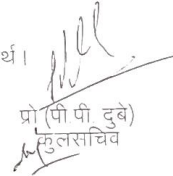 र्थ।
प्रो (पी.पी. दुबे)
कुलसचिव